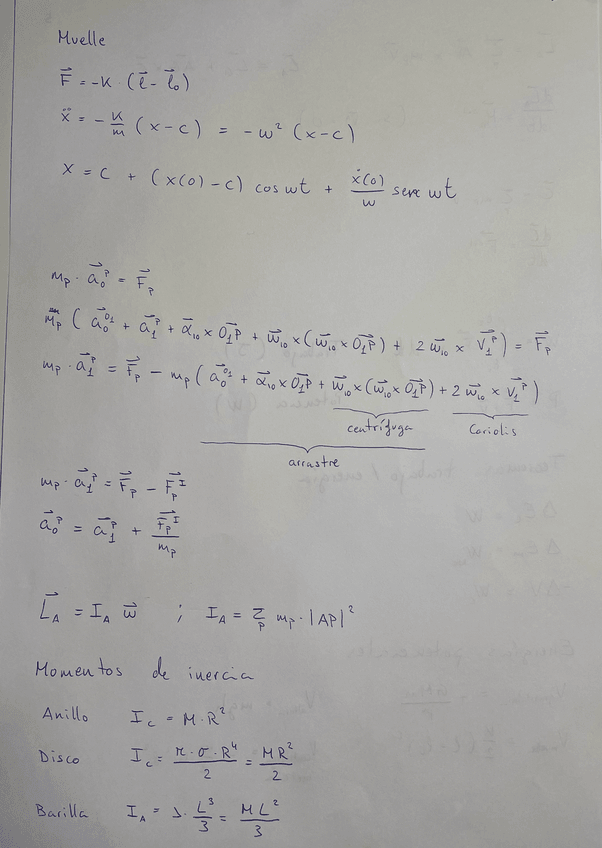 Muelle
F⃗ = -K · (l⃗ - l⃗₀)
ẍ = - K/m (x-c) = -ω² (x-c)
x = c + (x(0)-c) cos ωt + ẋ(0)/ω sen ωt
m_P · a⃗₀^P = F⃗_P
m_P ( a⃗₀^O₁ + a⃗₁^P + α⃗₁₀ × O₁P⃗ + ω⃗₁₀ × (ω⃗₁₀ × O₁P⃗) + 2 ω⃗₁₀ × v⃗₁^P ) = F⃗_P
m_P · a⃗₁^P = F⃗_P - m_P ( a⃗₀^O₁ + α⃗₁₀ × O₁P⃗ + ω⃗₁₀ × (ω⃗₁₀ × O₁P⃗) + 2 ω⃗₁₀ × v⃗₁^P )
centrífuga Coriolis
arrastre
m_P · a⃗₁^P = F⃗_P - F⃗_P^I
a⃗₀^P = a⃗₁^P + F⃗_P^I/m_P
L⃗_A = I_A ω⃗ ; I_A = Σ_P m_P · |AP|²
Momentos de inercia
Anillo I_c = M·R²
Disco I_c = π·σ·R⁴/2 = MR²/2
Barilla I_A = λ · L³/3 = ML²/3